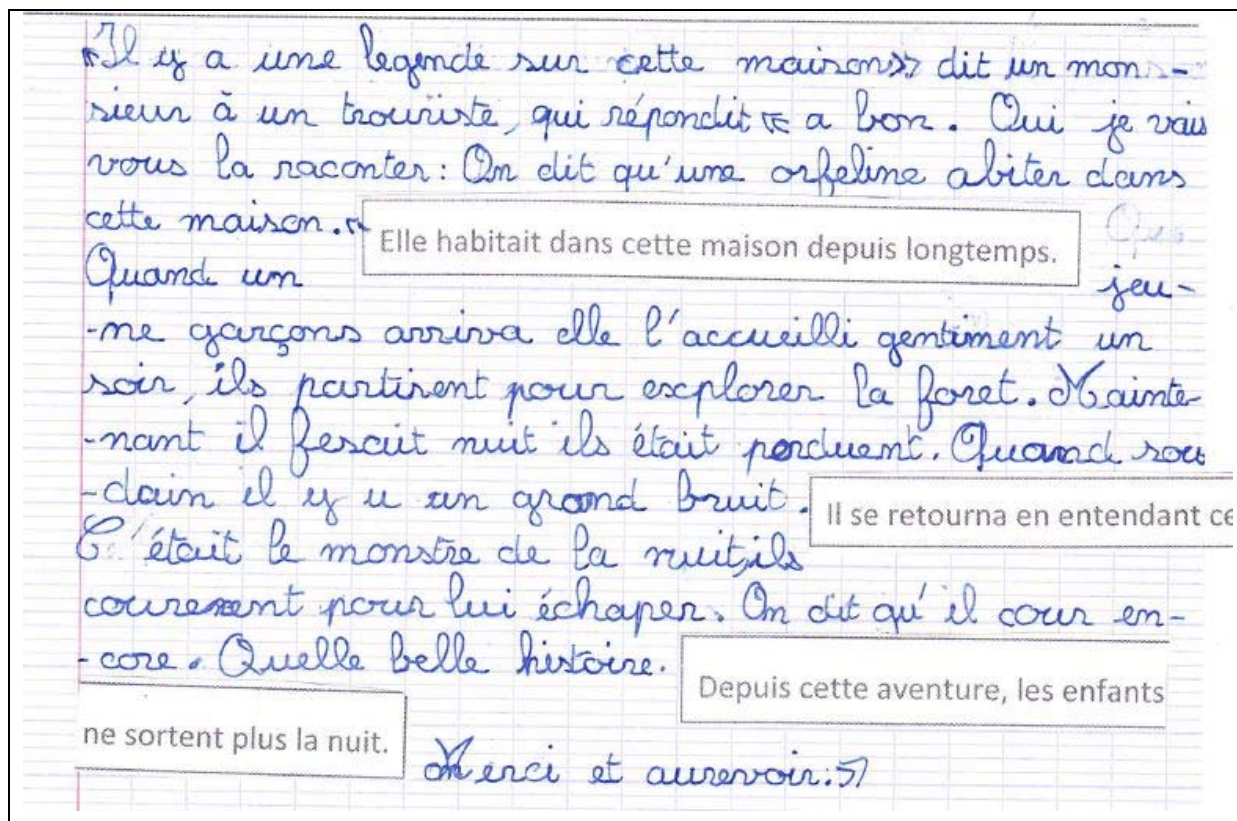 «Il y a une legende sur cette maison» dit un mon-
sieur à un trouriste, qui répondit « a bon. Oui je vais
vous la raconter: On dit qu'une orfeline abiter dans
cette maison.
Elle habitait dans cette maison depuis longtemps.
Quand un jeu-
-ne garçons arriva elle l'accueilli gentiment un
soir, ils partirent pour explorer la foret. Mainte-
-nant il fesait nuit ils était perduent. Quand sou
-dain il y u un grand bruit.
Il se retourna en entendant ce
C'était le monstre de la nuit, ils
courerent pour lui échaper. On dit qu'il cour en-
-core. Quelle belle histoire.
Depuis cette aventure, les enfants
ne sortent plus la nuit.
Merci et aurevoir:»